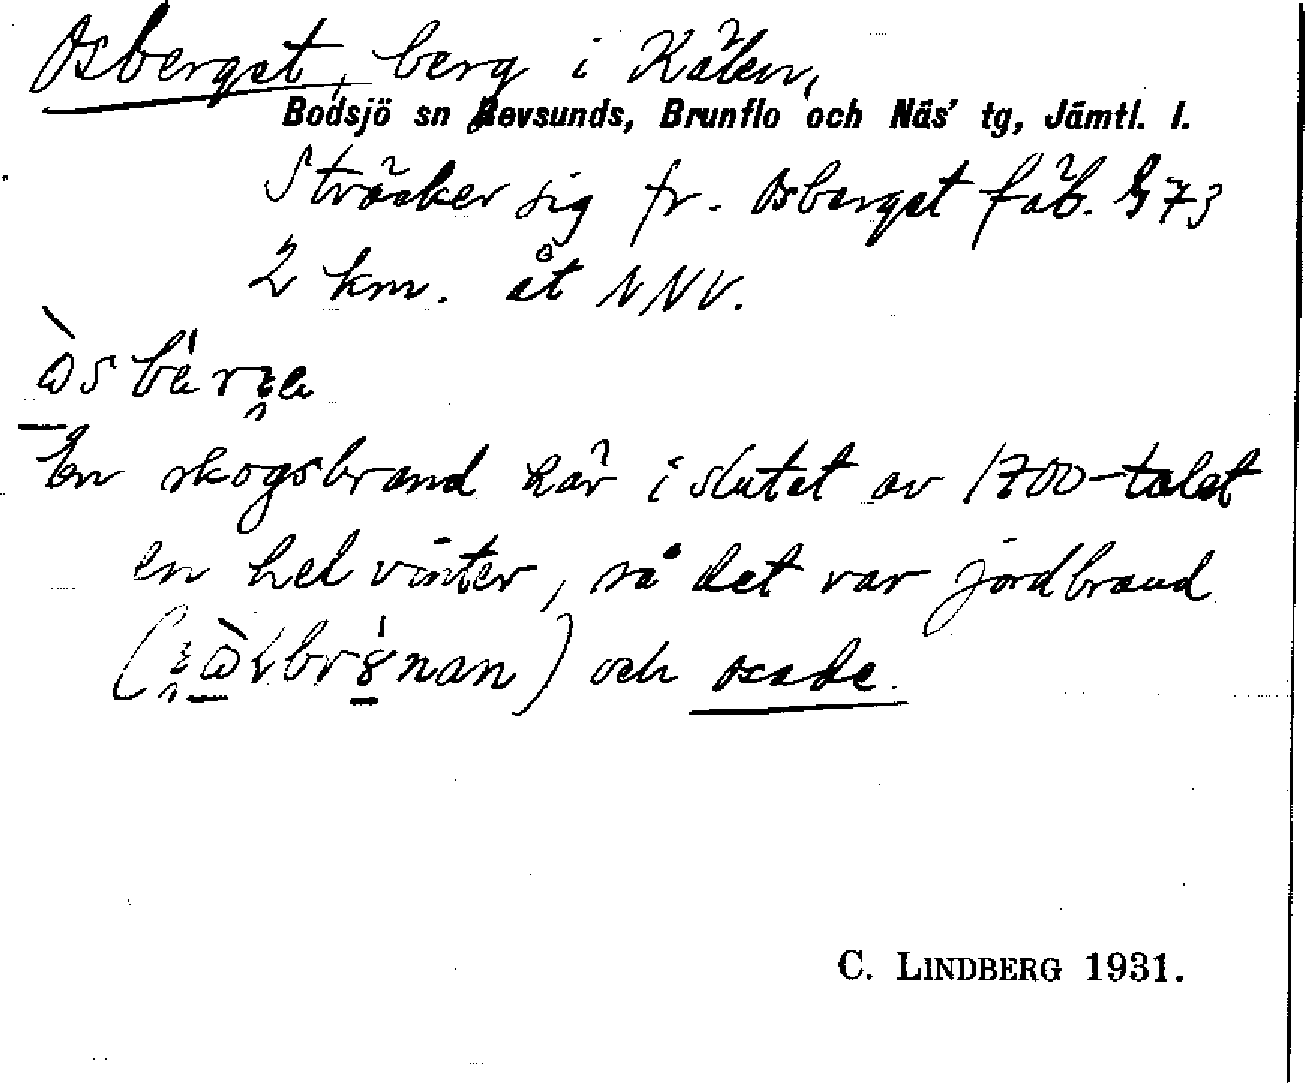 Osberget, berg i Kälen,
Bodsjö sn Revsunds, Brunflo och Näs' tg, Jämtl. l.
Sträcker sig fr. Osberget fäb. G 73
2 km. åt NNV.
En skogsbrand här i slutet av 1700-talet
en hel vinter, så det var jordbrand
och osade.
C. LINDBERG 1931.